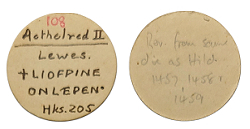 108
Aethelred II
Lewes.
+LIOFPINE
ONLEPEN·
Hks. 205
Rev. from same
die as Hild.
1457. 1458 &
1459